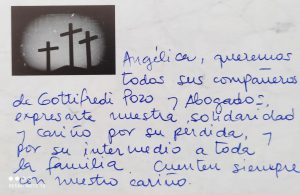 Angélica, queremos
todos sus compañeros
de Gottifredi Pozo y Abogados,
expresarte nuestra solidaridad
y cariño por su perdida, y
por su intermedio a toda
la familia. Cuenten siempre
con nuestro cariño.